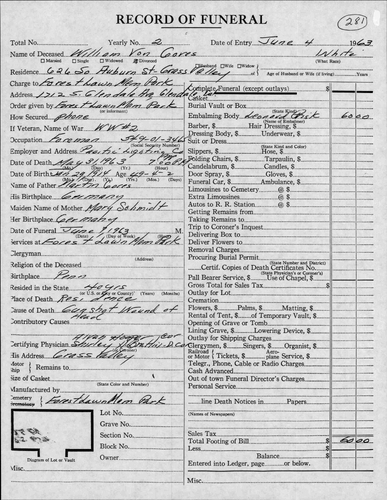 RECORD OF FUNERAL
281
Total No. Yearly No. 2 Date of Entry June 4 1963
Name of Deceased William Von Gores White
Married Single Widowed Divorced (What Race)
Residence 626 So Auburn St - Grass Valley
Husband Wife Widow
Age of Husband or Wife (if living) Years
Charge to Forest Lawn Mem. Park
Address 1712 S. Glendale Ave Glendale
Order given by Forest Lawn Mem Park
How Secured phone
If Veteran, Name of War WW#2
Occupation Foreman
(Social Security Number)
Employer and Address Pacific Lighting Co
Date of Death May 31, 1963
Date of Birth Jan 29 1914 Age 49-4-2
(Mo.) (Day) (Year) (Yrs.) (Mos.) (Days)
Name of Father Martin Gores
His Birthplace Germany
Maiden Name of Mother Mary Schmidt
Her Birthplace Germany
Date of Funeral June 7 1963
Services at Forest Lawn Mem Park
(Address)
Clergyman
Religion of the Deceased
Birthplace
Resided in the State 40 yrs
(or U.S. or City or County) (Years) (Months)
Place of Death Residence
Cause of Death Gunshot Wound of Head
Contributory Causes
Certifying Physician
His Address Grass Valley
Motor Remains to
Ship
Size of Casket
(State Color and Number)
Manufactured by
Cemetery Forest Lawn Mem Park
Crematory
Lot No.
Grave No.
Section No.
Block No.
Owner
Diagram of Lot or Vault
Misc.
Complete Funeral (except outlays) $
Casket
Burial Vault or Box
(State Kind)
Embalming Body Leonard Fisk 60 00
(Name of Embalmer)
Barber, $ Hair Dressing, $
Dressing Body, $ Underwear, $
Suit or Dress
(State Kind and Color)
Slippers, $ Hose, $
Folding Chairs, $ Tarpaulin, $
Candelabrum, $ Candles, $
Door Spray, $ Gloves, $
Funeral Car, $ Ambulance, $
Limousines to Cemetery @ $
Extra Limousines @ $
Autos to R. R. Station @ $
Getting Remains from
Taking Remains to
Trip to Coroner's Inquest
Delivering Box to
Deliver Flowers to
Removal Charges
Procuring Burial Permit
(State Number and District)
Certif. Copies of Death Certificates No.
(State Physician's or Coroner's)
Pall Bearer Service, $ Use of Chapel, $
Gross Total for Sales Tax $
Outlay for Lot
Cremation
Flowers, $ Palms, $ Matting, $
Rental of Tent, $ of Temporary Vault, $
Opening of Grave or Tomb
Lining Grave, $ Lowering Device, $
Outlay for Shipping Charges
Clergymen, $ Singers, $ Organist, $
Railroad or Motor Tickets, $ Aeroplane Service, $
Telegr., Phone, Cable or Radio Charges
Cash Advances
Out of town Funeral Director's Charges
Personal Service
line Death Notices in Papers
(Names of Newspapers)
Sales Tax
Total Footing of Bill $ 60 00
Less
Balance $
Entered into Ledger, page or below.
Misc.